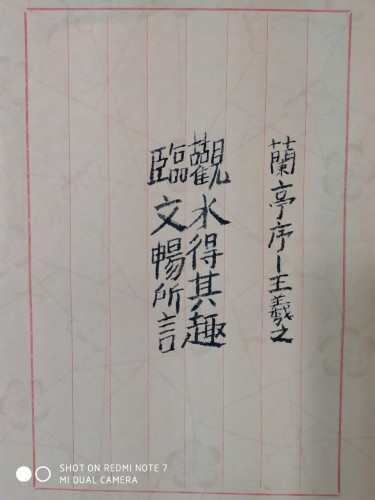 蘭亭序－王羲之
觀水得其趣
臨文暢所言
SHOT ON REDMI NOTE 7
MI DUAL CAMERA